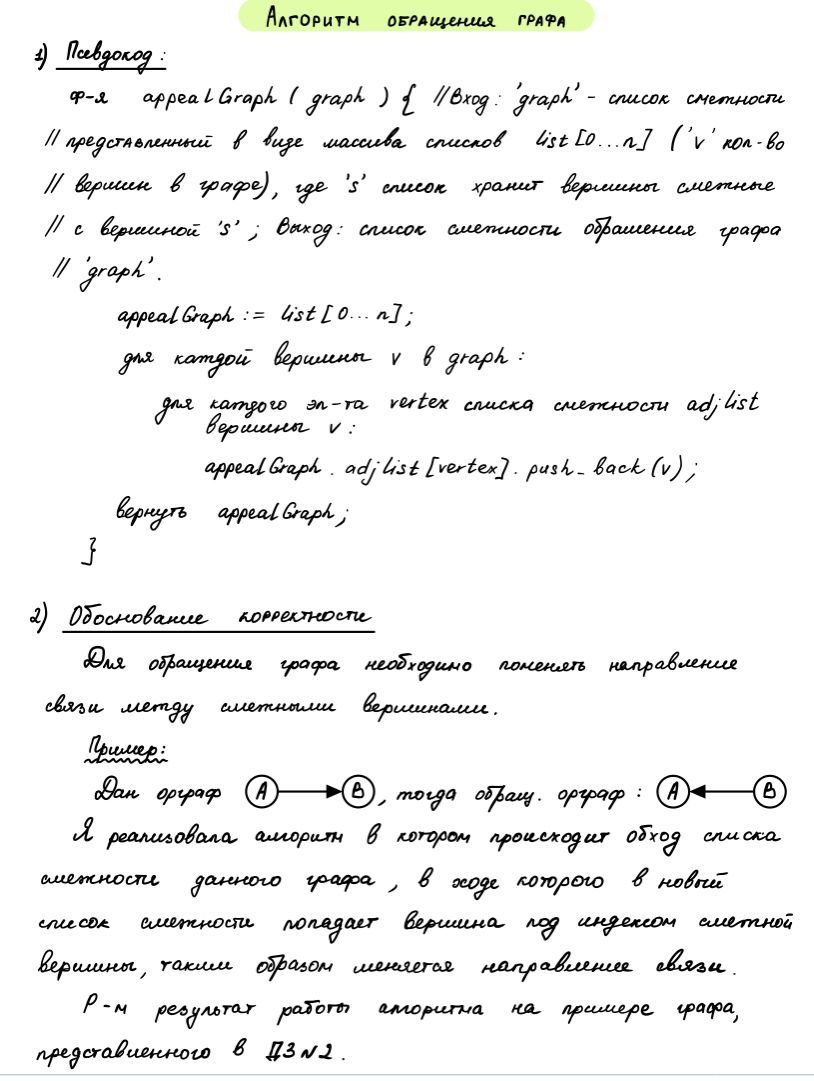 Алгоритм обращения графа
1) Псевдокод:
Ф-я appealGraph ( graph ) { //Вход: 'graph' - список смежности
// представленный в виде массива списков list [0...n] ('v' кол-во
// вершин в графе), где 's' список хранит вершины смежные
// с вершиной 's' ; Выход: список смежности обращения графа
// 'graph'.
appealGraph := list [0...n];
для каждой вершины v в graph :
для каждого эл-та vertex списка смежности adjlist
вершины v :
appealGraph . adjlist [vertex] . push_back (v) ;
вернуть appealGraph ;
}
2) Обоснование корректности
Для обращения графа необходимо поменять направление
связи между смежными вершинами.
Пример:
Дан орграф A B , тогда обращ. орграф : A B
Я реализовала алгоритм в котором происходит обход списка
смежности данного графа , в ходе которого в новый
список смежности попадает вершина под индексом смежной
вершины, таким образом меняется направление связи.
Р-м результат работы алгоритма на примере графа,
представленного в ДЗ №2.